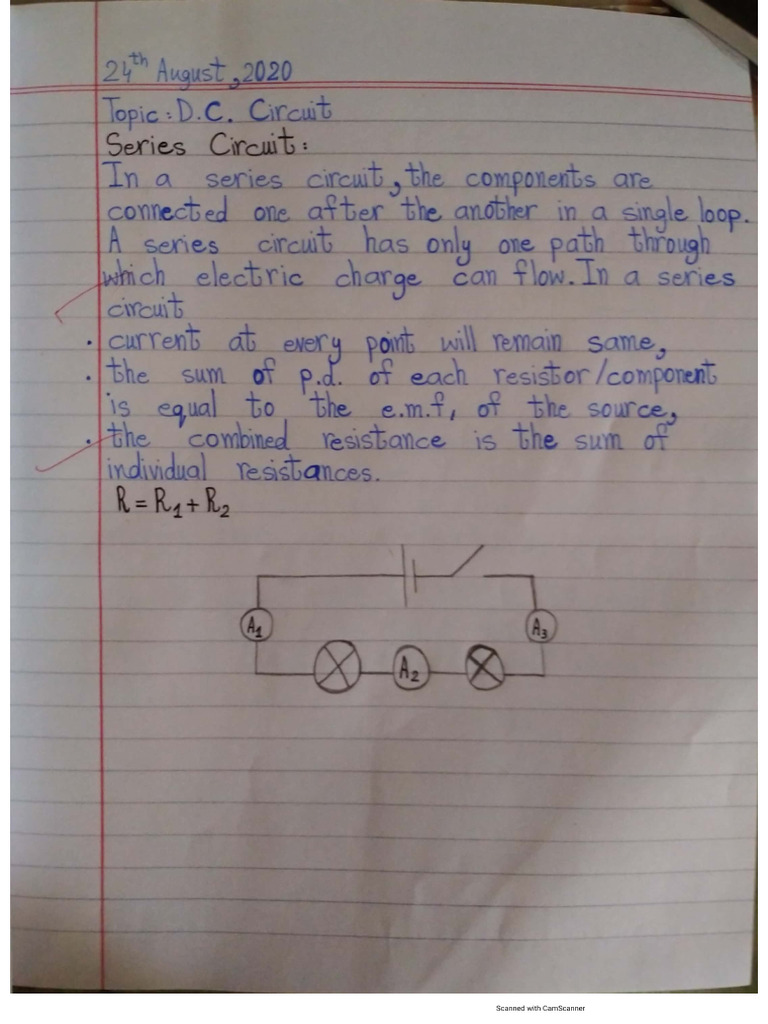 24th August, 2020
Topic: D.C. Circuit
Series Circuit:
In a series circuit, the components are
connected one after the another in a single loop.
A series circuit has only one path through
which electric charge can flow. In a series
circuit
• current at every point will remain same,
• the sum of p.d. of each resistor/component
is equal to the e.m.f, of the source,
• the combined resistance is the sum of
individual resistances.
R = R₁ + R₂
A₁
A₃
A₂
Scanned with CamScanner